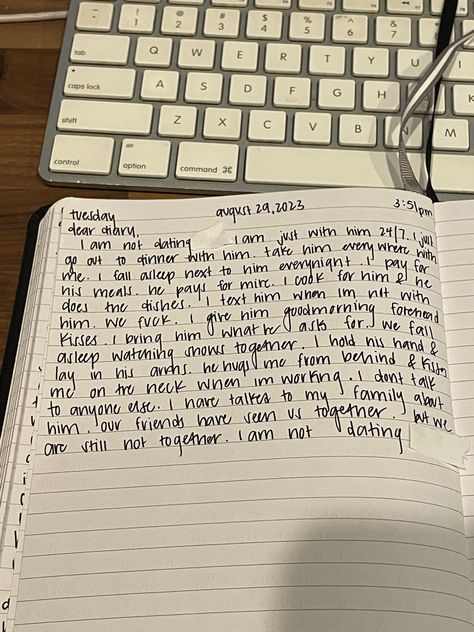 F1
F2
F3
F4
F5
F6
@ 2
# 3
$ 4
% 5
^ 6
& 7
tab Q W E R T Y U
caps lock A S D F G H J K
shift Z X C V B N
control option command ⌘
tuesday august 29, 2023 3:51pm
dear diary,
I am not dating I am just with him 24/7. I just
go out to dinner with him. take him everywhere with
me. I fall asleep next to him everynight. I pay for
his meals. he pays for mine. I cook for him & he
does the dishes. I text him when im not with
him. we fuck. I give him goodmorning forehead
kisses. I bring him what he asks for. we fall
asleep watching shows together. I hold his hand &
lay in his arms. he hugs me from behind & kisses
me on the neck when im working. I dont talk
to anyone else. I have talked to my family about
him. our friends have seen us together. but we
are still not together. I am not dating